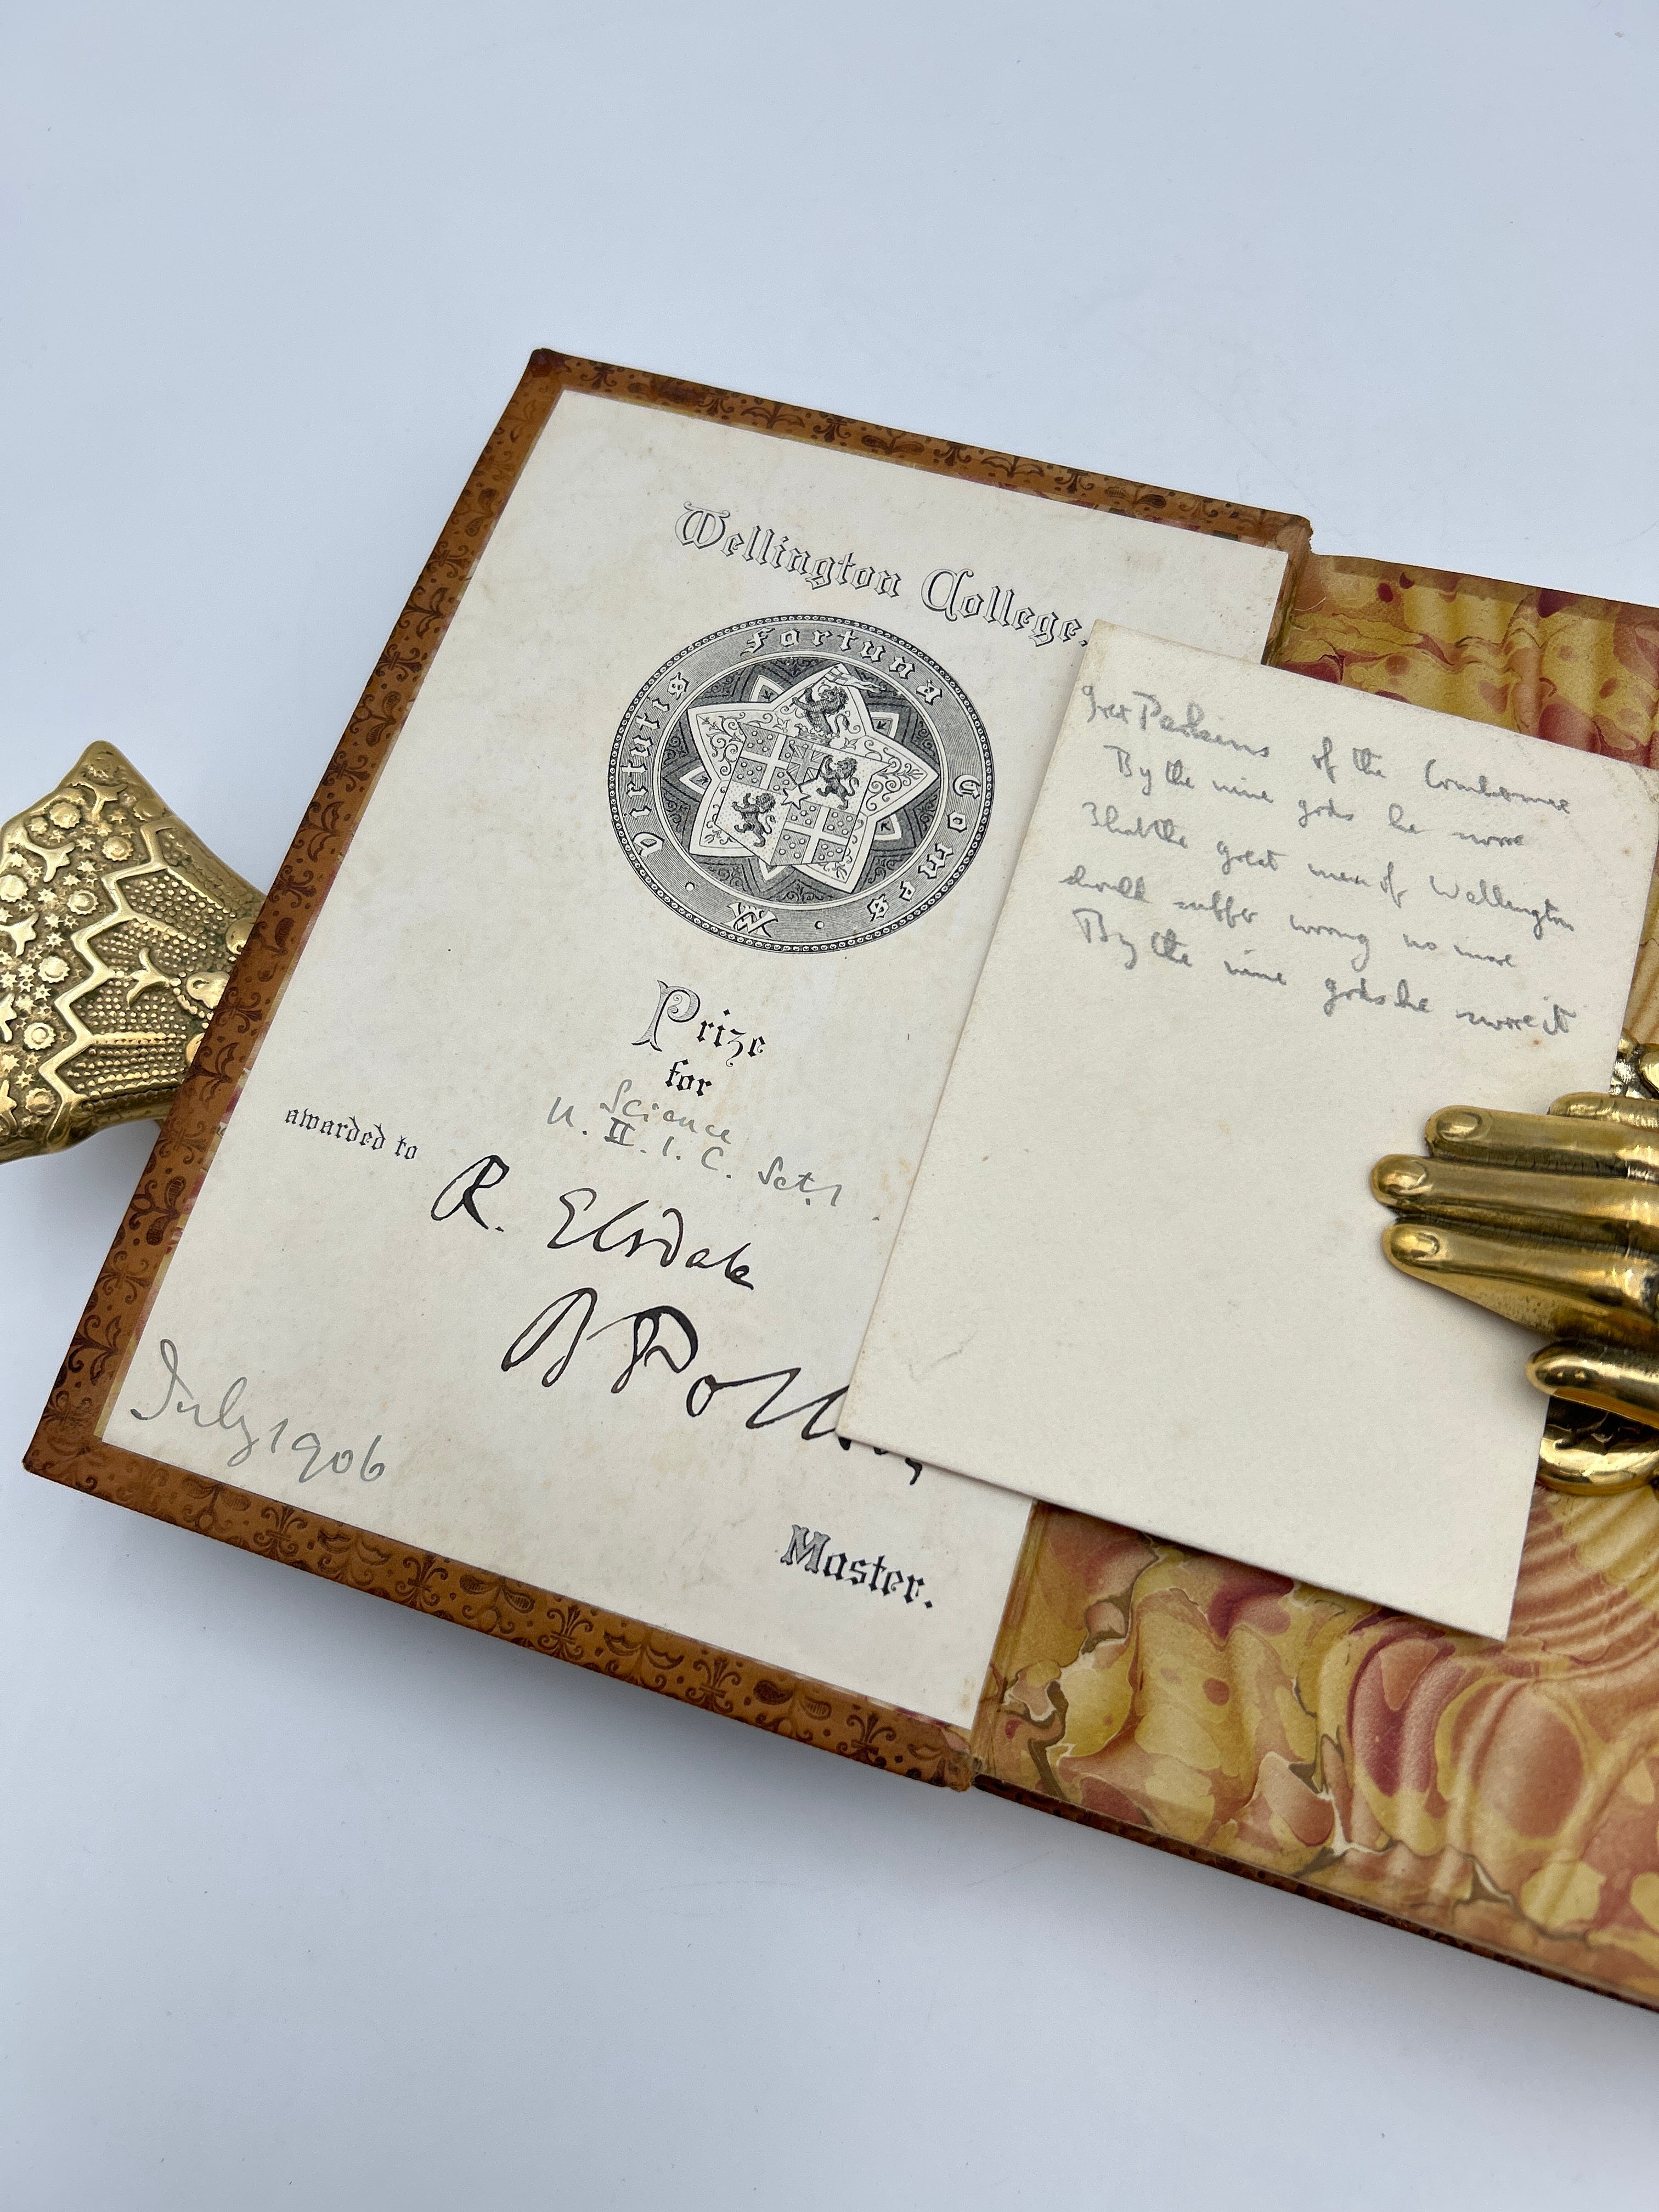 Wellington College.
Virtutis Fortuna Comes
W
Prize
for
Science
U. II. 1. C. Set. 1
awarded to
R. Elsdale
B Poll
July 1906
Master.
of the
By the nine gods he swore
That the great men of Wellington
should suffer wrong no more
By the nine gods he swore it